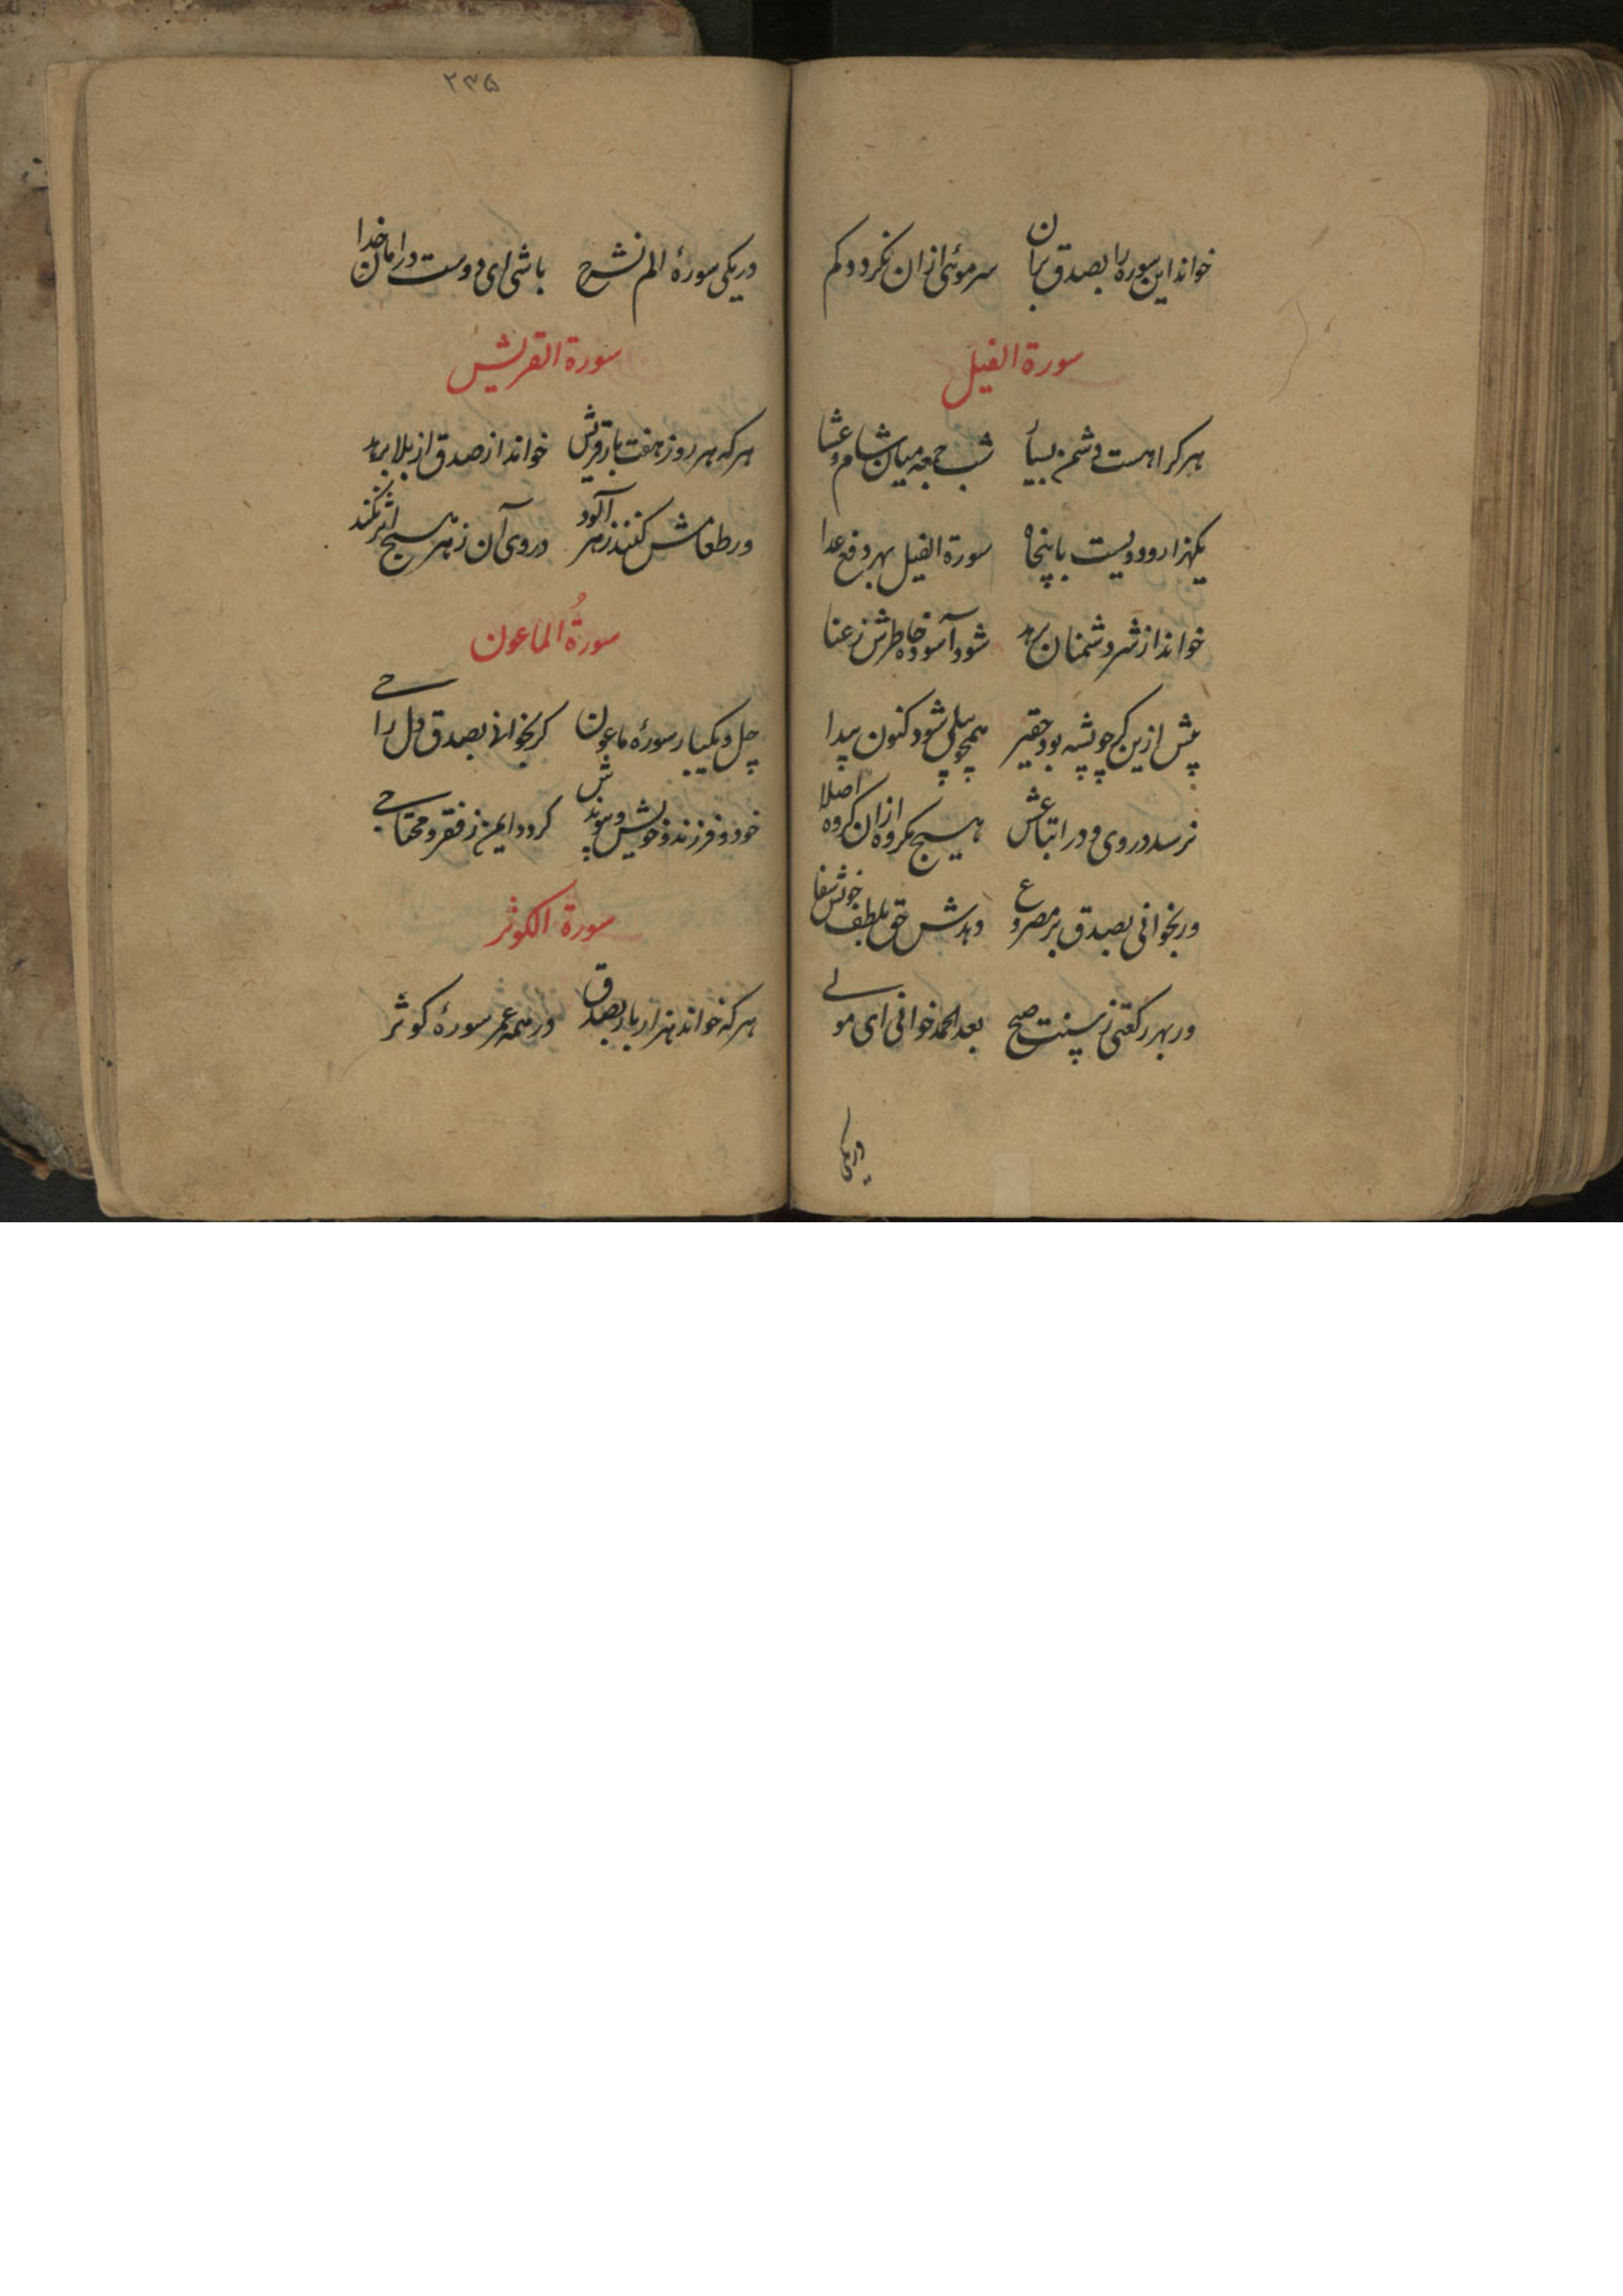 خواند این سوره را بصدق بران سر موئی ازان نکردد کم
سورة الفیل
هر کرا هست دشمن بسیار شب جمعه میان شام و عشا
یکهزار و دویست با پنجاه سورة الفیل بهر دفع عدا
خواند از شر دشمنان برهد شود آسوده خاطرش ز عنا
پیش ازین کر چو پشه بود حقیر همچو پیلی شود کنون پیدا
نرسد در وی و در اتباعش هیچ مکروه ازان کروه اصلا
ور بخوانی بصدق بر مصروع دهدش حق بلطف خویش شفا
ور بهر رکعتی ز سنت صبح بعد الحمد خوانی ای مولے
در یکی
۲۳۵
در یکی سورهٔ الم نشرح باشی ای دوست در امان خدا
سورة القریش
هر که هر روز هفت بار قریش خواند از صدق از بلا برهد
ور طعامش کنند زهر آلود در وی آن زهر هیچ اثر نکند
سورةُ الماعون
چل و یکبار سورهٔ ماعون کر بخوانی بصدق دل راجے
خود و فرزند و خویش و پیوندش کردد ایمن ز فقر و محتاجے
سورة الکوثر
هر که خواند هزار بار بصدق در همه عمر سورهٔ کوثر